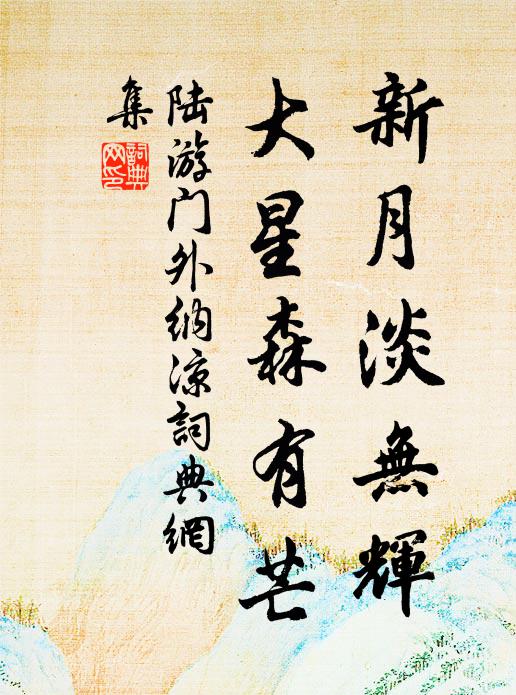 新月淡無輝
大星森有芒
陆游门外纳凉詞典網
集
詞典
网印